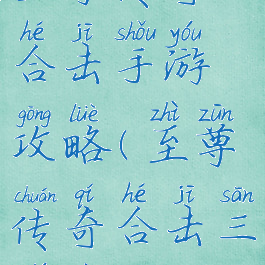 hé jī shǒu yóu
合击手游
gōng lüè zhì zūn
攻略(至尊
chuán qí hé jī sān
传奇合击三